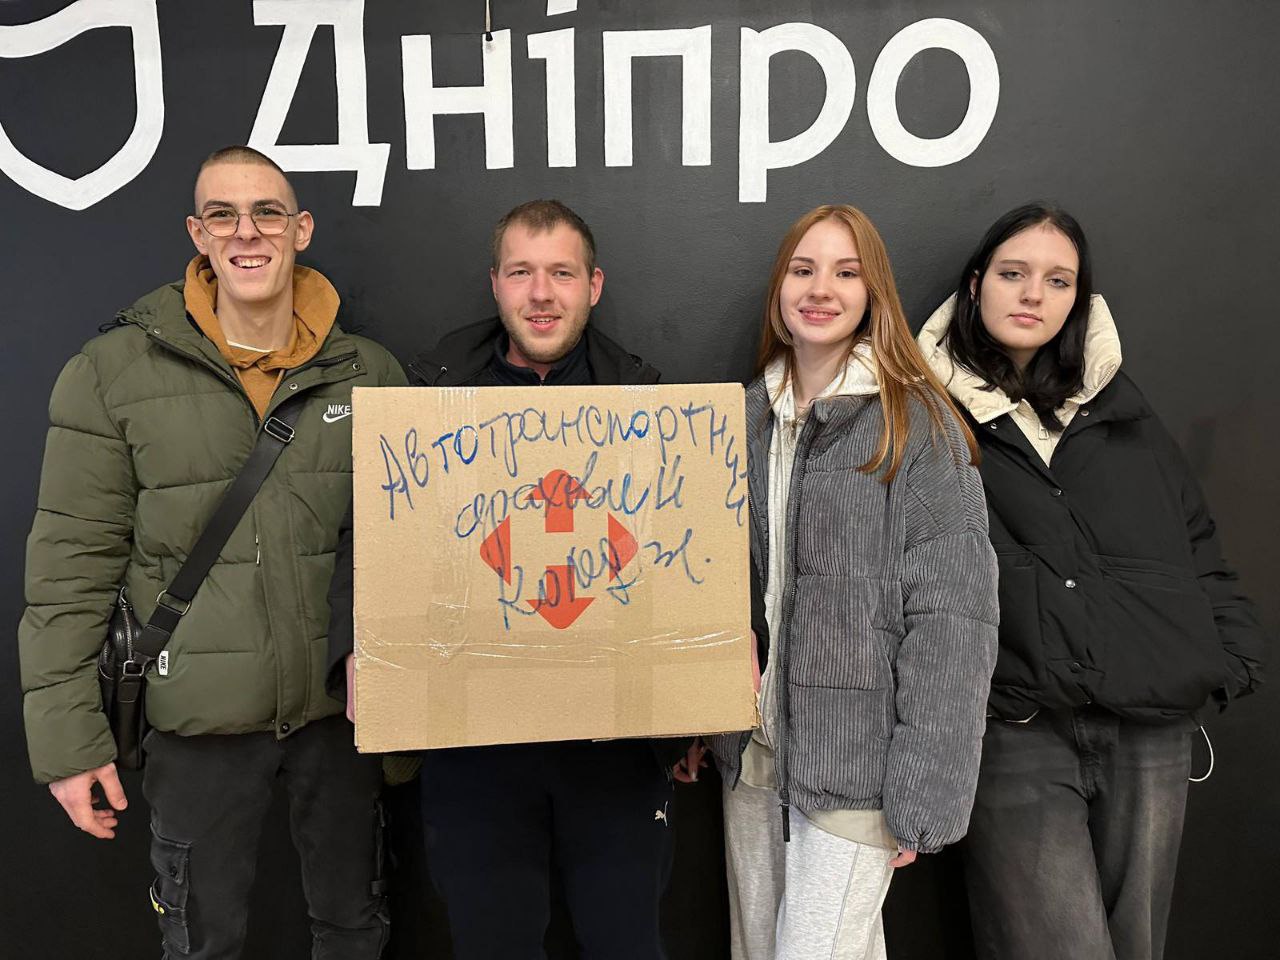 Дніпро
NIKE
Автотранспортний
фаховий
Коледж.
NIKE